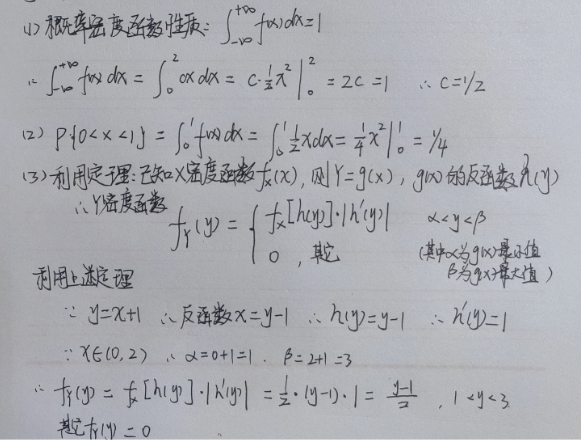 (1) 概率密度函数性质: ∫_{-∞}^{+∞} f(x)dx=1
∴ ∫_{-∞}^{+∞} f(x)dx = ∫_0^2 cxdx = c·½x²|_0^2 = 2c =1 ∴ c=1/2
(2) P{0<x<1} = ∫_0^1 f(x)dx = ∫_0^1 ½xdx = ¼x²|_0^1 = 1/4
(3) 利用定理:已知X密度函数f_X(x), 则Y=g(x), g(x)的反函数h(y)
∴Y密度函数
f_Y(y) = { f_X[h(y)]·|h'(y)| α<y<β
0, 其它 (其中α为g(x)最小值
β为g(x)最大值)
利用上述定理
∵ y=x+1 ∴反函数x=y-1 ∴h(y)=y-1 ∴h'(y)=1
∵ x∈(0,2) ∴ α=0+1=1. β=2+1=3
∴ f_Y(y) = f_X[h(y)]·|h'(y)| = ½·(y-1)·1 = (y-1)/2, 1<y<3
其它f_Y(y)=0